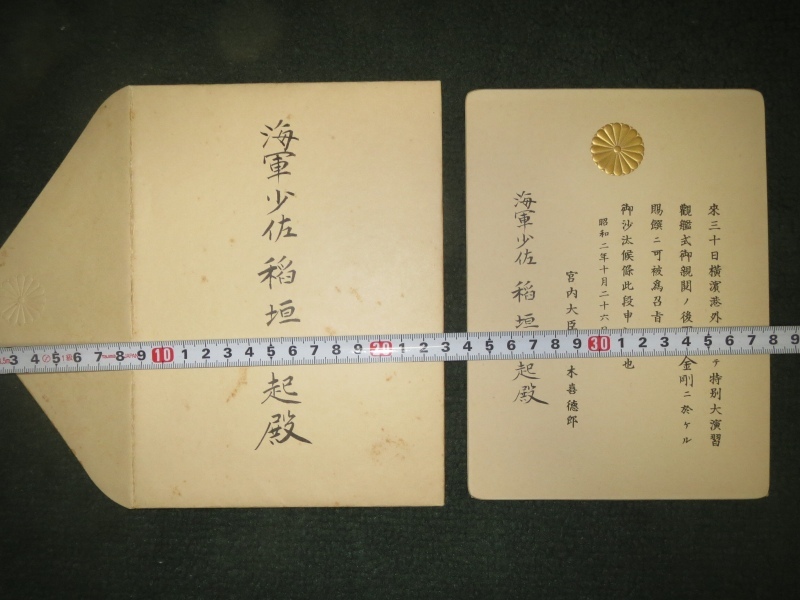 海軍少佐 稻垣 起殿
來三十日橫濱港外 テ特別大演習
觀艦式御親閱ノ後 金剛ニ於ケル
賜饌ニ可被爲召旨
御沙汰候條此段申 也
昭和二年十月二十六日
宮內大臣 木喜德郎
海軍少佐 稻垣 起殿
3 4 5 6 7 8 9 10 1 2 3 4 5 6 7 8 9 20 1 2 3 4 5 6 7 8 9 30 1 2 3 4 5 6 7 8 9